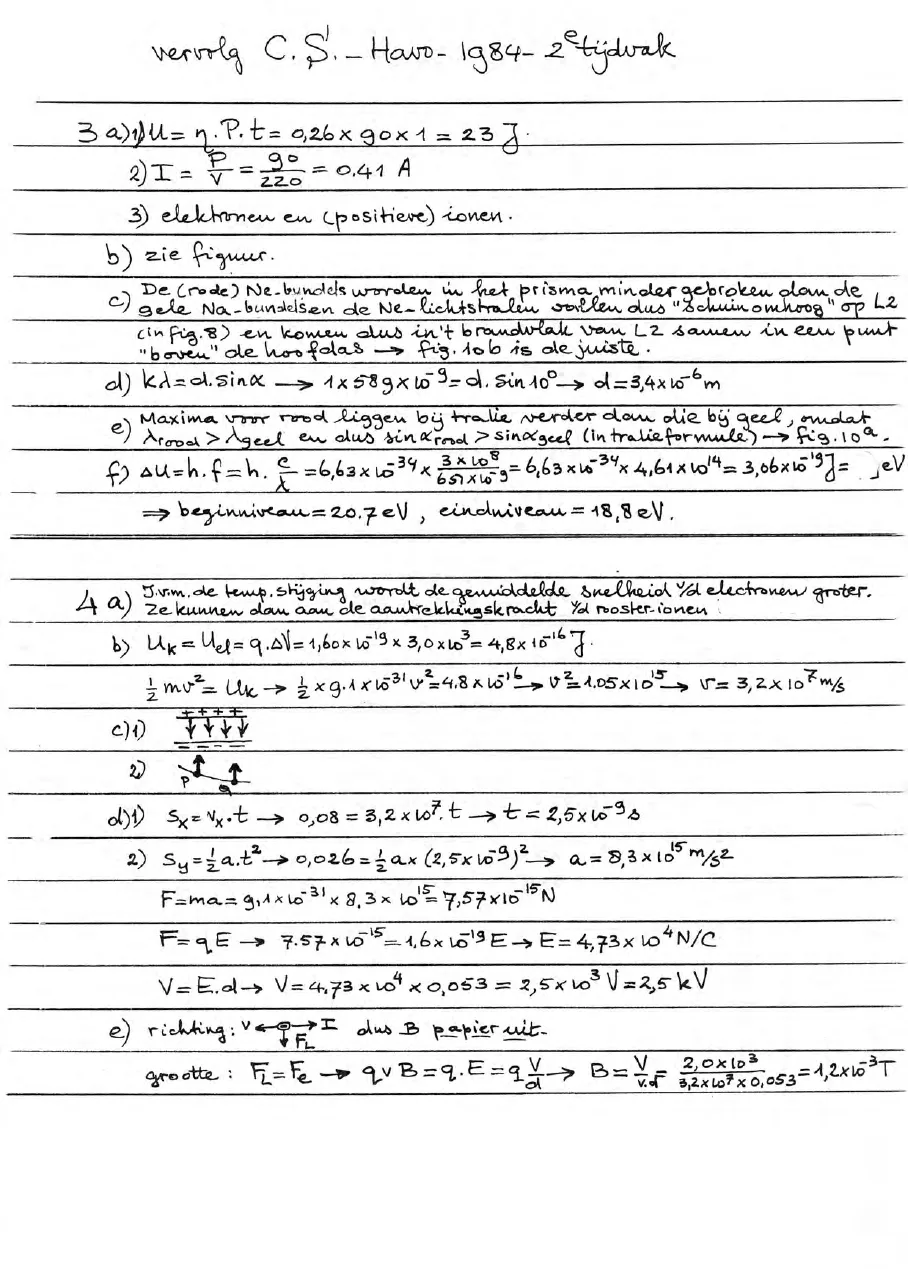 vervolg C.S. - Havo - 1984 - 2e tijdvak
3 a) 1) U = η.P.t = 0,26 x 90 x 1 = 23 J.
2) I = P/V = 90/220 = 0.41 A
3) elektronen en (positieve) ionen.
b) zie figuur.
c) De (rode) Ne-bundels worden in het prisma minder gebroken dan de
gele Na-bundels en de Ne-lichtstralen vallen dus "schuin omhoog" op L2
(in fig. 8) en komen dus in 't brandvlak van L2 samen in een punt
"boven" de hoofdas → fig. 10b is de juiste.
d) kλ = d. sinα → 1 x 589 x 10⁻⁹ = d. sin 10° → d = 3,4 x 10⁻⁶ m
e) Maxima voor rood liggen bij tralie verder dan die bij geel, omdat
λrood > λgeel en dus sinαrood > sinαgeel (in tralieformule) → fig. 10a.
f) ΔU = h.f = h. c/λ = 6,63 x 10⁻³⁴ x 3 x 10⁸/651 x 10⁻⁹ = 6,63 x 10⁻³⁴ x 4,61 x 10¹⁴ = 3,06 x 10⁻¹⁹ J = eV
⇒ beginniveau = 20.7 eV, eindniveau = 18,8 eV.
4 a) T.v.m. de temp. stijging wordt de gemiddelde snelheid v/d electronen groter.
Ze kunnen dan aan de aantrekkingskracht v/d rooster-ionen
b) Uk = Uel = q.ΔV = 1,60 x 10⁻¹⁹ x 3,0 x 10³ = 4,8 x 10⁻¹⁶ J.
½ mv² = Uk → ½ x 9.1 x 10⁻³¹ v² = 4.8 x 10⁻¹⁶ → v² = 1.05 x 10¹⁵ → v = 3,2 x 10⁷ m/s
c) 1) + + + +
- - - -
2) P Q
d) 1) Sx = vx.t → 0,08 = 3,2 x 10⁷. t → t = 2,5 x 10⁻⁹ s
2) Sy = ½ a.t² → 0,026 = ½ a x (2,5 x 10⁻⁹)² → a = 8,3 x 10¹⁵ m/s2
F = ma = 9,1 x 10⁻³¹ x 8,3 x 10¹⁵ = 7,57 x 10⁻¹⁵ N
F = qE → 7.57 x 10⁻¹⁵ = 1,6 x 10⁻¹⁹ E → E = 4,73 x 10⁴ N/C
V = E.d → V = 4,73 x 10⁴ x 0,053 = 2,5 x 10³ V = 2,5 kV
e) richting: v ← → I FL dus B papier uit-
grootte: FL = Fe → qvB = q.E = q V/d → B = V/v.d = 2,0 x 10³/3,2 x 10⁷ x 0,053 = 1,2 x 10⁻³ T